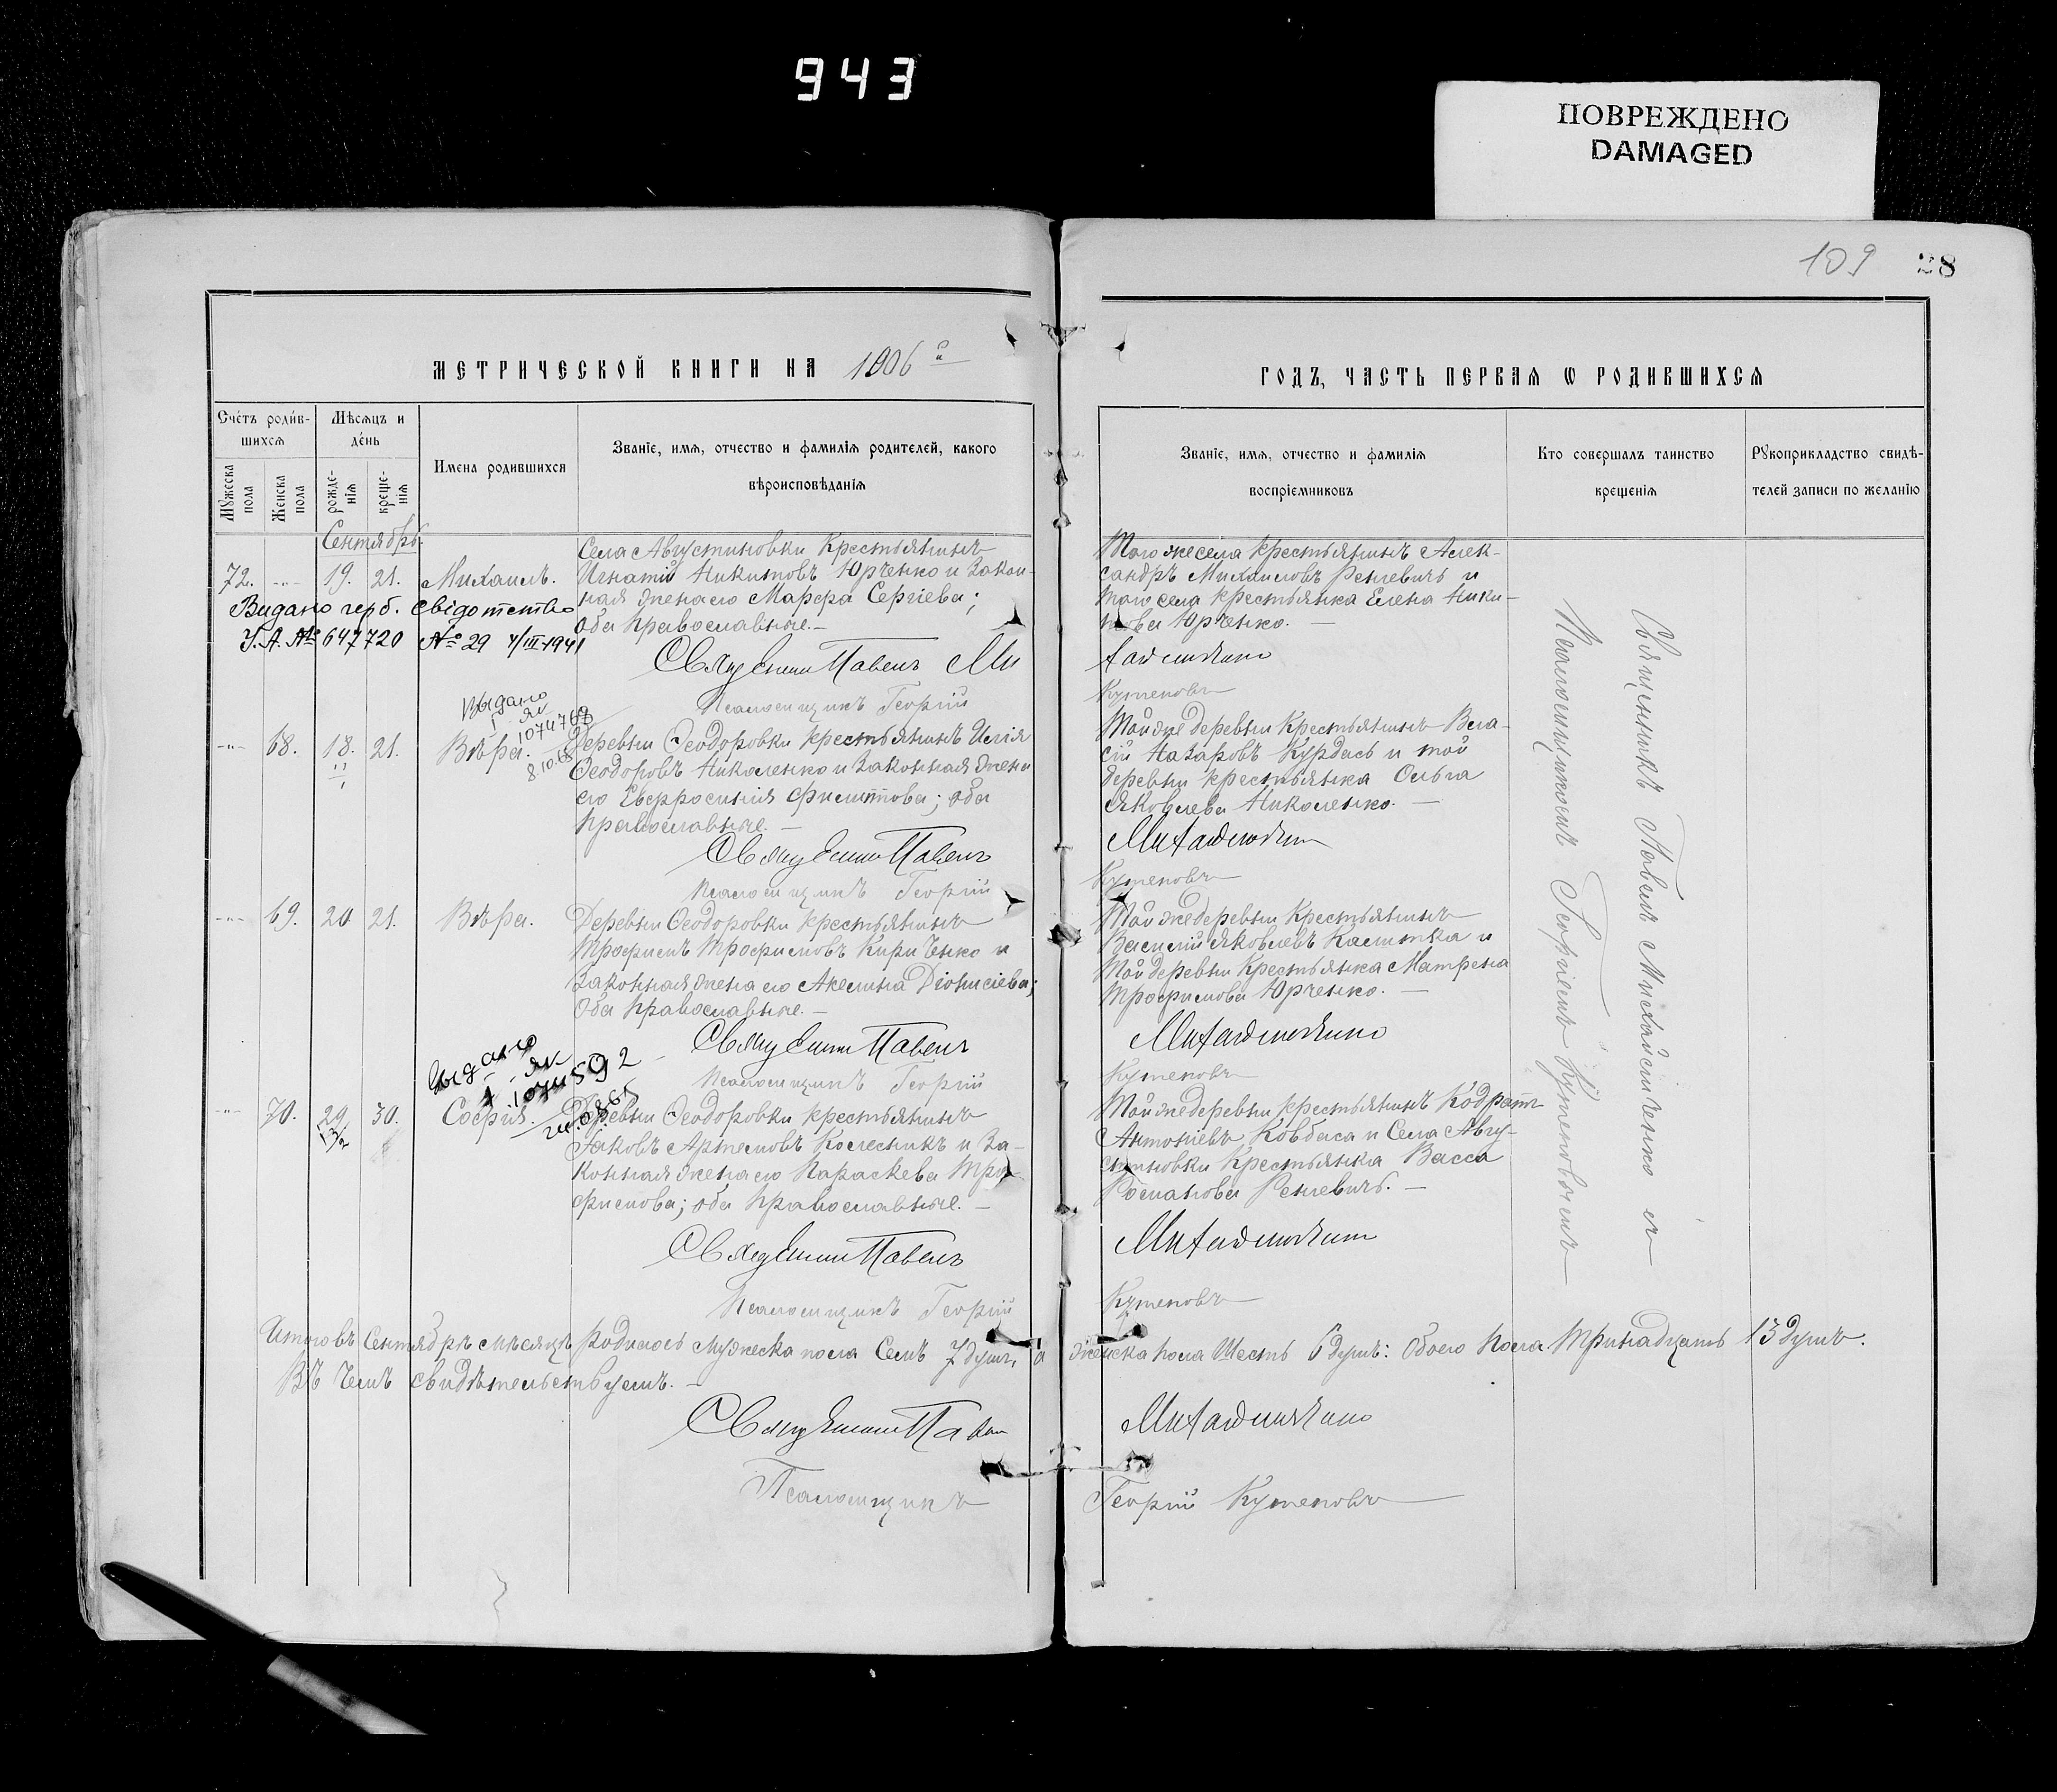 943
ПОВРЕЖДЕНО
DAMAGED
109 28
МЕТРИЧЕСКОЙ КНИГИ НА 1906й
Счетъ родив-
шихся
Мѣсяцъ и
день
Мужеска
пола
Женска
пола
рожде-
нія
креще-
нія
Имена родившихся
Званіе, имя, отчество и фамилія родителей, какого
вѣроисповѣданія
Сентябрь
72. -"- 19. 21. Михаилъ.
Села Августиновки крестьянинъ
Игнатій Никитовъ Юрченко и закон-
ная жена его Марфа Сергіева;
оба православные.
Видано герб. свідотство
У.А. № 647720 № 29 4/III-1941
Священникъ Павелъ Ми
Псаломщикъ Георгій
Выдано
I ЯК
1074768
8.10.65
-"- 68. 18. 21. Вѣра.
Деревни Ѳеодоровки крестьянинъ Илія
Ѳеодоровъ Николенко и законная жена
его Евфросинія Филиппова; оба
православные.
Священникъ Павелъ
Псаломщикъ Георгій
-"- 69. 20 21. Вѣра.
Деревни Ѳеодоровки крестьянинъ
Трофимъ Трофимовъ Кириченко и
законная жена его Акелина Діонисіева;
оба православные.
Священникъ Павелъ
Псаломщикъ Георгій
Выдано
I ЯК
1074592
-"- 70. 29 30. Софія.
Деревни Ѳеодоровки крестьянинъ
Іаковъ Артемовъ Колесникъ и за-
конная жена его Параскева Тро-
фимова; оба православные.
Священникъ Павелъ
Псаломщикъ Георгій
Итого въ Сентябрѣ мѣсяцѣ родилось мужеска пола Семь 7 душъ, а
Въ чемъ свидѣтельствуемъ.
Священникъ Павелъ
Псаломщикъ
ГОДЪ, ЧАСТЬ ПЕРВАЯ Ѡ РОДИВШИХСЯ
Званіе, имя, отчество и фамилія
воспріемниковъ
Кто совершалъ таинство
крещенія
Рукоприкладство свидѣ-
телей записи по желанію
Того же села крестьянинъ Алек-
сандръ Михаиловъ Реплевичъ и
того села крестьянка Елена Ники-
това Юрченко.
Кутеповъ
Той же деревни крестьянинъ Вла-
сій Назаровъ Курдась и той
деревни крестьянка Ольга
Яковлева Николенко.
Михайличенко
Кутеповъ
Той же деревни крестьянинъ
Василій Яковлевъ Калитка и
той деревни крестьянка Матрена
Трофимова Юрченко.
Михайличенко
Кутеповъ
Той же деревни крестьянинъ Кодратъ
Антоніевъ Ковбаса и Села Авгу-
стиновки крестьянка Васса
Романова Реплевичъ.
Михайличенко
Кутеповъ
женска пола Шесть 6 душъ: обоего пола Тринадцать 13 душъ.
Михайличенко
Георгій Кутеповъ
Священникъ Павелъ Михайличенко съ
Псаломщикомъ Георгіемъ Кутеповымъ